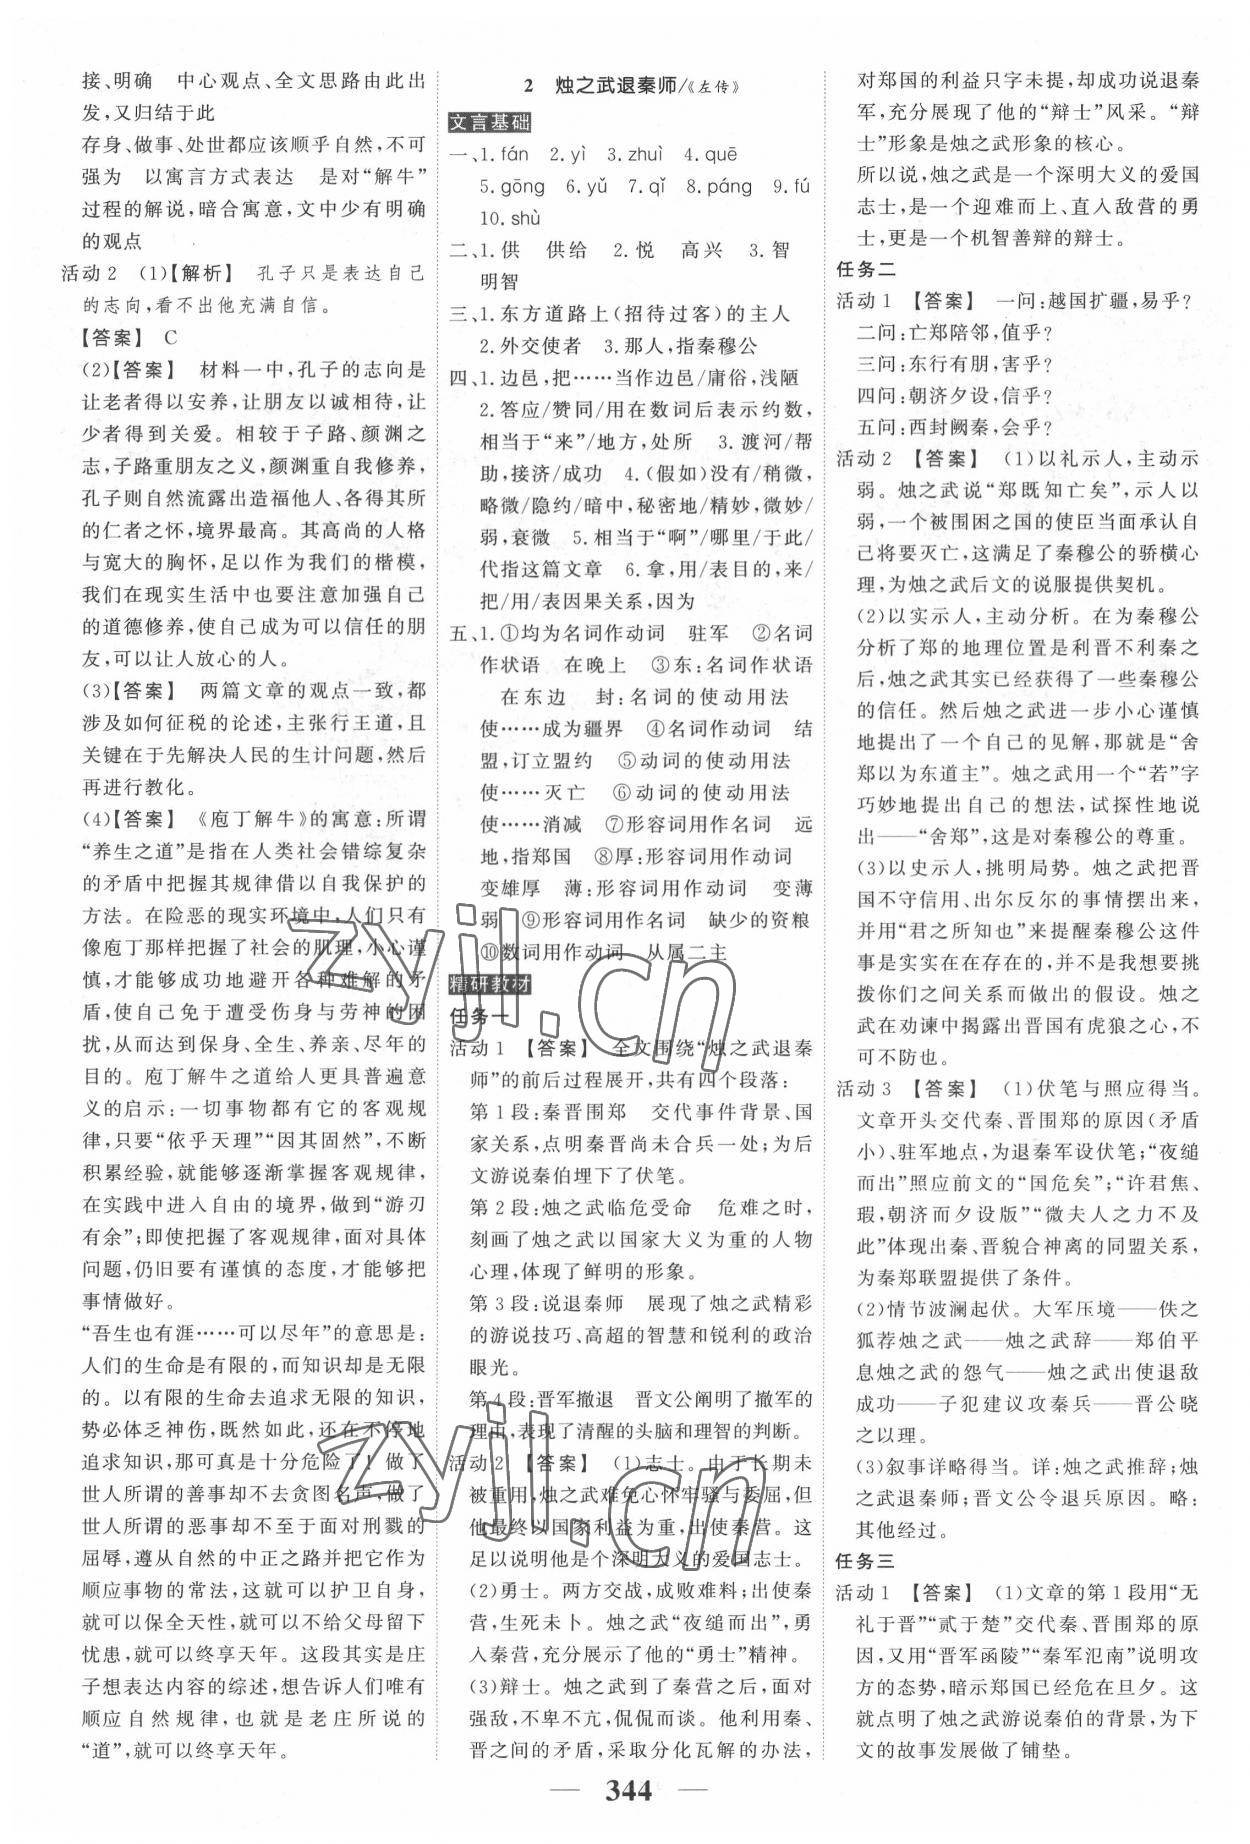 接、明确　中心观点、全文思路由此出
发，又归结于此
存身、做事、处世都应该顺乎自然，不可
强为　以寓言方式表达　是对“解牛”
过程的解说，暗合寓意，文中少有明确
的观点
活动2　(1)【解析】　孔子只是表达自己
的志向，看不出他充满自信。
【答案】　C
(2)【答案】　材料一中，孔子的志向是
让老者得以安养，让朋友以诚相待，让
少者得到关爱。相较于子路、颜渊之
志，子路重朋友之义，颜渊重自我修养，
孔子则自然流露出造福他人、各得其所
的仁者之怀，境界最高。其高尚的人格
与宽大的胸怀，足以作为我们的楷模，
我们在现实生活中也要注意加强自己
的道德修养，使自己成为可以信任的朋
友，可以让人放心的人。
(3)【答案】　两篇文章的观点一致，都
涉及如何征税的论述，主张行王道，且
关键在于先解决人民的生计问题，然后
再进行教化。
(4)【答案】　《庖丁解牛》的寓意：所谓
“养生之道”是指在人类社会错综复杂
的矛盾中把握其规律借以自我保护的
方法。在险恶的现实环境中，人们只有
像庖丁那样把握了社会的肌理，小心谨
慎，才能够成功地避开各种难解的矛
盾，使自己免于遭受伤身与劳神的困
扰，从而达到保身、全生、养亲、尽年的
目的。庖丁解牛之道给人更具普遍意
义的启示：一切事物都有它的客观规
律，只要“依乎天理”“因其固然”，不断
积累经验，就能够逐渐掌握客观规律，
在实践中进入自由的境界，做到“游刃
有余”；即使把握了客观规律，面对具体
问题，仍旧要有谨慎的态度，才能够把
事情做好。
“吾生也有涯……可以尽年”的意思是：
人们的生命是有限的，而知识却是无限
的。以有限的生命去追求无限的知识，
势必体乏神伤，既然如此，还在不停地
追求知识，那可真是十分危险了！做了
世人所谓的善事却不去贪图名声，做了
世人所谓的恶事却不至于面对刑戮的
屈辱，遵从自然的中正之路并把它作为
顺应事物的常法，这就可以护卫自身，
就可以保全天性，就可以不给父母留下
忧患，就可以终享天年。这段其实是庄
子想表达内容的综述，想告诉人们唯有
顺应自然规律，也就是老庄所说的
“道”，就可以终享天年。
2　烛之武退秦师/《左传》
文言基础
一、1. fán　2. yì　3. zhuì　4. quē
5. gōng　6. yǔ　7. qǐ　8. páng　9. fú
10. shù
二、1. 供　供给　2. 悦　高兴　3. 智
明智
三、1. 东方道路上(招待过客)的主人
2. 外交使者　3. 那人，指秦穆公
四、1. 边邑，把……当作边邑/庸俗，浅陋
2. 答应/赞同/用在数词后表示约数，
相当于“来”/地方，处所　3. 渡河/帮
助，接济/成功　4. (假如)没有/稍微，
略微/隐约/暗中，秘密地/精妙，微妙/
弱，衰微　5. 相当于“啊”/哪里/于此/
代指这篇文章　6. 拿，用/表目的，来/
把/用/表因果关系，因为
五、1. ①均为名词作动词　驻军　②名词
作状语　在晚上　③东：名词作状语
在东边　封：名词的使动用法
使……成为疆界　④名词作动词　结
盟，订立盟约　⑤动词的使动用法
使……灭亡　⑥动词的使动用法
使……消减　⑦形容词用作名词　远
地，指郑国　⑧厚：形容词用作动词
变雄厚　薄：形容词用作动词　变薄
弱　⑨形容词用作名词　缺少的资粮
⑩数词用作动词　从属二主
精研教材
任务一
活动1　【答案】　全文围绕“烛之武退秦
师”的前后过程展开，共有四个段落：
第1段：秦晋围郑　交代事件背景、国
家关系，点明秦晋尚未合兵一处；为后
文游说秦伯埋下了伏笔。
第2段：烛之武临危受命　危难之时，
刻画了烛之武以国家大义为重的人物
心理，体现了鲜明的形象。
第3段：说退秦师　展现了烛之武精彩
的游说技巧、高超的智慧和锐利的政治
眼光。
第4段：晋军撤退　晋文公阐明了撤军的
理由，表现了清醒的头脑和理智的判断。
活动2　【答案】　(1)志士。由于长期未
被重用，烛之武难免心怀牢骚与委屈，但
他最终以国家利益为重，出使秦营。这
足以说明他是个深明大义的爱国志士。
(2)勇士。两方交战，成败难料；出使秦
营，生死未卜。烛之武“夜缒而出”，勇
入秦营，充分展示了他的“勇士”精神。
(3)辩士。烛之武到了秦营之后，面对
强敌，不卑不亢，侃侃而谈。他利用秦、
晋之间的矛盾，采取分化瓦解的办法，
对郑国的利益只字未提，却成功说退秦
军，充分展现了他的“辩士”风采。“辩
士”形象是烛之武形象的核心。
所以说，烛之武是一个深明大义的爱国
志士，是一个迎难而上、直入敌营的勇
士，更是一个机智善辩的辩士。
任务二
活动1　【答案】　一问：越国扩疆，易乎？
二问：亡郑陪邻，值乎？
三问：东行有朋，害乎？
四问：朝济夕设，信乎？
五问：西封阙秦，会乎？
活动2　【答案】　(1)以礼示人，主动示
弱。烛之武说“郑既知亡矣”，示人以
弱，一个被围困之国的使臣当面承认自
己将要灭亡，这满足了秦穆公的骄横心
理，为烛之武后文的说服提供契机。
(2)以实示人，主动分析。在为秦穆公
分析了郑的地理位置是利晋不利秦之
后，烛之武其实已经获得了一些秦穆公
的信任。然后烛之武进一步小心谨慎
地提出了一个自己的见解，那就是“舍
郑以为东道主”。烛之武用一个“若”字
巧妙地提出自己的想法，试探性地说
出——“舍郑”，这是对秦穆公的尊重。
(3)以史示人，挑明局势。烛之武把晋
国不守信用、出尔反尔的事情摆出来，
并用“君之所知也”来提醒秦穆公这件
事是实实在在存在的，并不是我想要挑
拨你们之间关系而做出的假设。烛之
武在劝谏中揭露出晋国有虎狼之心，不
可不防也。
活动3　【答案】　(1)伏笔与照应得当。
文章开头交代秦、晋围郑的原因(矛盾
小)、驻军地点，为退秦军设伏笔；“夜缒
而出”照应前文的“国危矣”；“许君焦、
瑕，朝济而夕设版”“微夫人之力不及
此”体现出秦、晋貌合神离的同盟关系，
为秦郑联盟提供了条件。
(2)情节波澜起伏。大军压境——佚之
狐荐烛之武——烛之武辞——郑伯平
息烛之武的怨气——烛之武出使退敌
成功——子犯建议攻秦兵——晋公晓
之以理。
(3)叙事详略得当。详：烛之武推辞；烛
之武退秦师；晋文公令退兵原因。略：
其他经过。
任务三
活动1　【答案】　(1)文章的第1段用“无
礼于晋”“贰于楚”交代秦、晋围郑的原
因，又用“晋军函陵”“秦军氾南”说明攻
方的态势，暗示郑国已经危在旦夕。这
就点明了烛之武游说秦伯的背景，为下
文的故事发展做了铺垫。
— 344 —
zyjl.cn
zyjl.cn